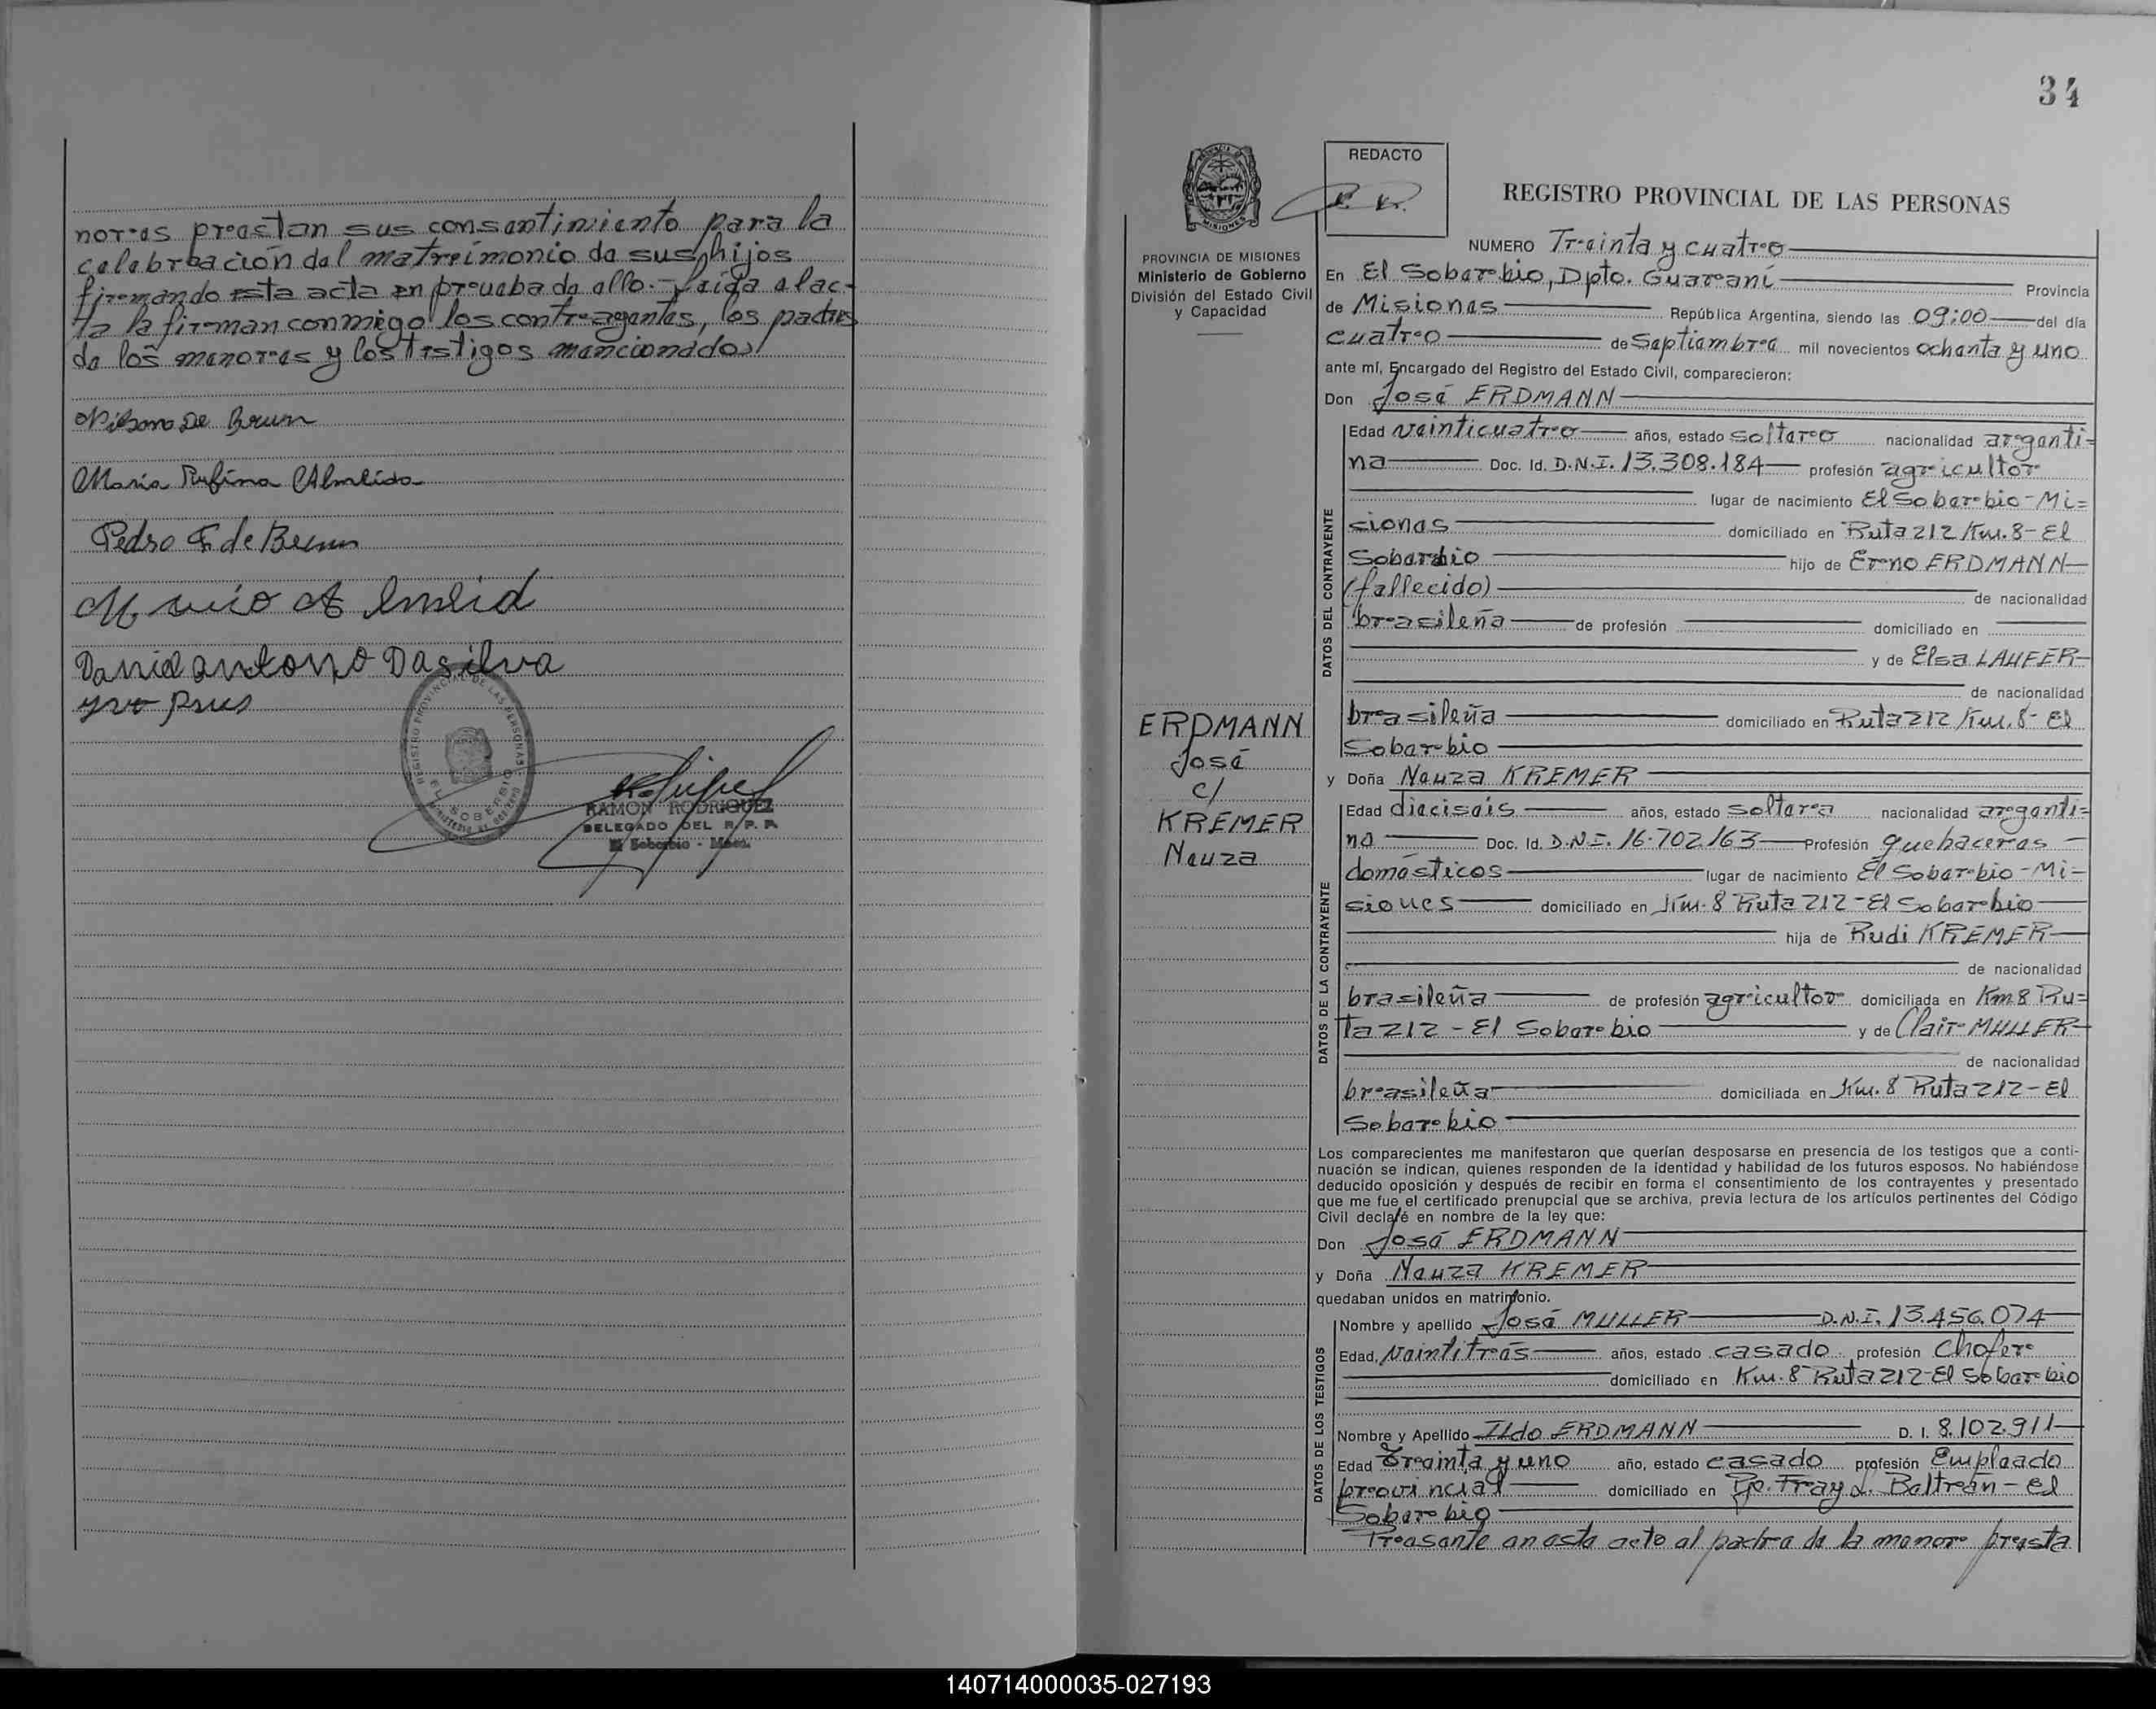 nores prestan sus consentimiento para la
celebrbación del matrimonio de sus hijos
firmando esta acta en prueba de ello.- Leída el ac-
ta la firman conmigo los contragentes, los padres
de los menores y los testigos mencionados/
Nilsona De Brum
Maria Rufina Almeida
Pedro F de Brum
Daniel antonio Dasilva
yvo Prus
REGISTRO PROVINCIAL DE LAS PERSONAS
EL SOBERBIO
RAMON RODRIGUEZ
DELEGADO DEL R. P. P.
El Soberbio - Mnes.
34
REDACTO
R. R.
MISIONES
REGISTRO PROVINCIAL DE LAS PERSONAS
PROVINCIA DE MISIONES
Ministerio de Gobierno
División del Estado Civil
y Capacidad
ERDMANN
José
c/
KREMER
Neuza
NUMERO Treinta y cuatro
En El Soberbio, Dpto. Guaraní Provincia
de Misiones República Argentina, siendo las 09:00 del día
cuatro de Septiembre mil novecientos ochenta y uno
ante mí, Encargado del Registro del Estado Civil, comparecieron:
Don José ERDMANN
DATOS DEL CONTRAYENTE
Edad veinticuatro años, estado soltero nacionalidad argenti=
na Doc. Id. D.N.I. 13.308.184 profesión agricultor
lugar de nacimiento El Soberbio-Mi=
siones domiciliado en Ruta 212 Km. 8- El
Soberbio hijo de Erno ERDMANN
(fallecido) de nacionalidad
brasileña de profesión domiciliado en
y de Elsa LAUFER
de nacionalidad
brasileña domiciliado en Ruta 212 Km. 8- El
Soberbio
y Doña Neuza KREMER
DATOS DE LA CONTRAYENTE
Edad dieciseis años, estado soltera nacionalidad argenti=
na Doc. Id. D.N.I. 16.702.163 Profesión quehaceres
domésticos lugar de nacimiento El Soberbio-Mi=
siones domiciliado en Km. 8 Ruta 212-El Soberbio
hija de Rudi KREMER
de nacionalidad
brasileña de profesión agricultor domiciliada en Km 8 Ru=
ta 212 - El Soberbio y de Clair MULLER
de nacionalidad
brasileña domiciliada en Km. 8 Ruta 212 - El
Soberbio
Los comparecientes me manifestaron que querían desposarse en presencia de los testigos que a conti-
nuación se indican, quienes responden de la identidad y habilidad de los futuros esposos. No habiéndose
deducido oposición y después de recibir en forma el consentimiento de los contrayentes y presentado
que me fue el certificado prenupcial que se archiva, previa lectura de los artículos pertinentes del Código
Civil declaré en nombre de la ley que:
Don José ERDMANN
y Doña Neuza KREMER
quedaban unidos en matrimonio.
DATOS DE LOS TESTIGOS
Nombre y apellido José MULLER D.N.I. 13.456.074
Edad, veintitrés años, estado casado profesión Chofer
domiciliado en Km. 8 Ruta 212-El Soberbio
Nombre y Apellido Ildo ERDMANN D. I. 8.102.911
Edad treinta y uno año, estado casado profesión Empleado
provincial domiciliado en Pje. Fray L. Beltrán - El
Soberbio
Presente en este acto el padre de la menor presta
140714000035-027193